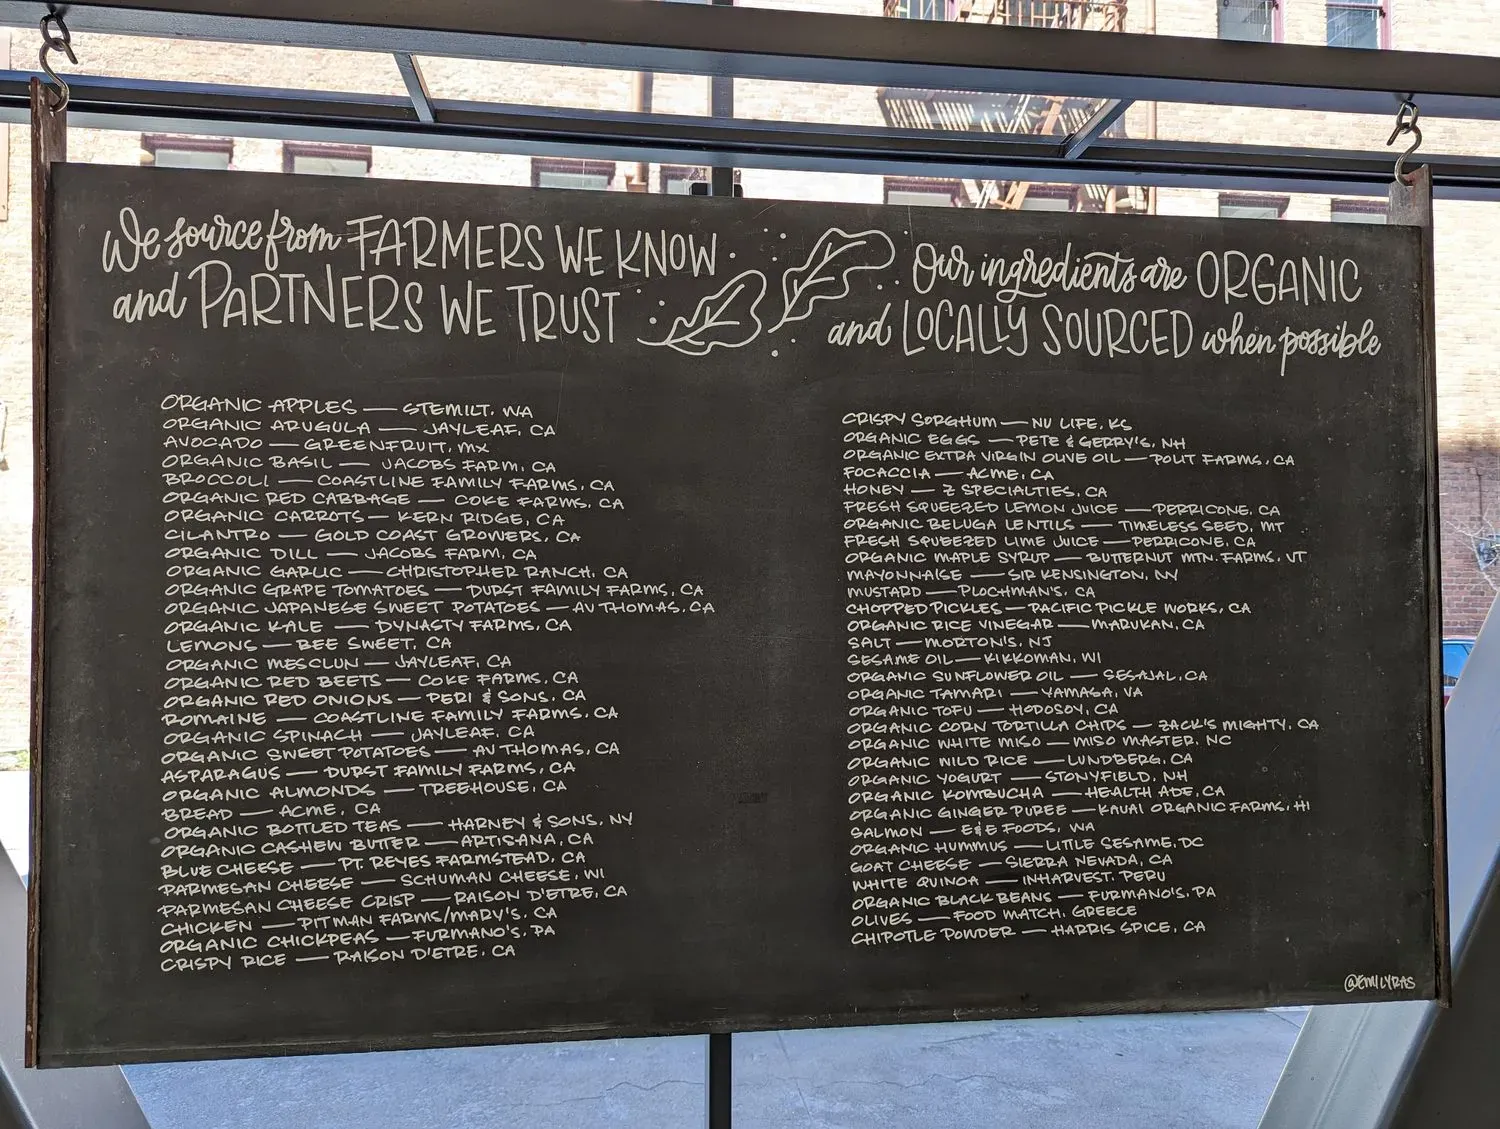 We source from FARMERS WE KNOW
and PARTNERS WE TRUST
Our ingredients are ORGANIC
and LOCALLY SOURCED when possible
ORGANIC APPLES — STEMILT, WA
ORGANIC ARUGULA — JAYLEAF, CA
AVOCADO — GREENFRUIT, MX
ORGANIC BASIL — JACOBS FARM, CA
BROCCOLI — COASTLINE FAMILY FARMS, CA
ORGANIC RED CABBAGE — COKE FARMS, CA
ORGANIC CARROTS — KERN RIDGE, CA
CILANTRO — GOLD COAST GROWERS, CA
ORGANIC DILL — JACOBS FARM, CA
ORGANIC GARLIC — CHRISTOPHER RANCH, CA
ORGANIC GRAPE TOMATOES — DURST FAMILY FARMS, CA
ORGANIC JAPANESE SWEET POTATOES — AV THOMAS, CA
ORGANIC KALE — DYNASTY FARMS, CA
LEMONS — BEE SWEET, CA
ORGANIC MESCLUN — JAYLEAF, CA
ORGANIC RED BEETS — COKE FARMS, CA
ORGANIC RED ONIONS — PERI & SONS, CA
ROMAINE — COASTLINE FAMILY FARMS, CA
ORGANIC SPINACH — JAYLEAF, CA
ORGANIC SWEET POTATOES — AV THOMAS, CA
ASPARAGUS — DURST FAMILY FARMS, CA
ORGANIC ALMONDS — TREEHOUSE, CA
BREAD — ACME, CA
ORGANIC BOTTLED TEAS — HARNEY & SONS, NY
ORGANIC CASHEW BUTTER — ARTISANA, CA
BLUE CHEESE — PT. REYES FARMSTEAD, CA
PARMESAN CHEESE — SCHUMAN CHEESE, WI
PARMESAN CHEESE CRISP — RAISON D'ETRE, CA
CHICKEN — PITMAN FARMS/MARY'S, CA
ORGANIC CHICKPEAS — FURMANO'S, PA
CRISPY RICE — RAISON D'ETRE, CA
CRISPY SORGHUM — NU LIFE, KS
ORGANIC EGGS — PETE & GERRY'S, NH
ORGANIC EXTRA VIRGIN OLIVE OIL — POLIT FARMS, CA
FOCACCIA — ACME, CA
HONEY — Z SPECIALTIES, CA
FRESH SQUEEZED LEMON JUICE — PERRICONE, CA
ORGANIC BELUGA LENTILS — TIMELESS SEED, MT
FRESH SQUEEZED LIME JUICE — PERRICONE, CA
ORGANIC MAPLE SYRUP — BUTTERNUT MTN. FARMS, VT
MAYONNAISE — SIR KENSINGTON, NY
MUSTARD — PLOCHMAN'S, CA
CHOPPED PICKLES — PACIFIC PICKLE WORKS, CA
ORGANIC RICE VINEGAR — MARUKAN, CA
SALT — MORTON'S, NJ
SESAME OIL — KIKKOMAN, WI
ORGANIC SUNFLOWER OIL — SESAJAL, CA
ORGANIC TAMARI — YAMASA, VA
ORGANIC TOFU — HODOSOY, CA
ORGANIC CORN TORTILLA CHIPS — ZACK'S MIGHTY, CA
ORGANIC WHITE MISO — MISO MASTER, NC
ORGANIC WILD RICE — LUNDBERG, CA
ORGANIC YOGURT — STONYFIELD, NH
ORGANIC KOMBUCHA — HEALTH ADE, CA
ORGANIC GINGER PUREE — KAUAI ORGANIC FARMS, HI
SALMON — E&E FOODS, WA
ORGANIC HUMMUS — LITTLE SESAME, DC
GOAT CHEESE — SIERRA NEVADA, CA
WHITE QUINOA — INHARVEST, PERU
ORGANIC BLACK BEANS — FURMANO'S, PA
OLIVES — FOOD MATCH, GREECE
CHIPOTLE POWDER — HARRIS SPICE, CA
@EMILYRAS